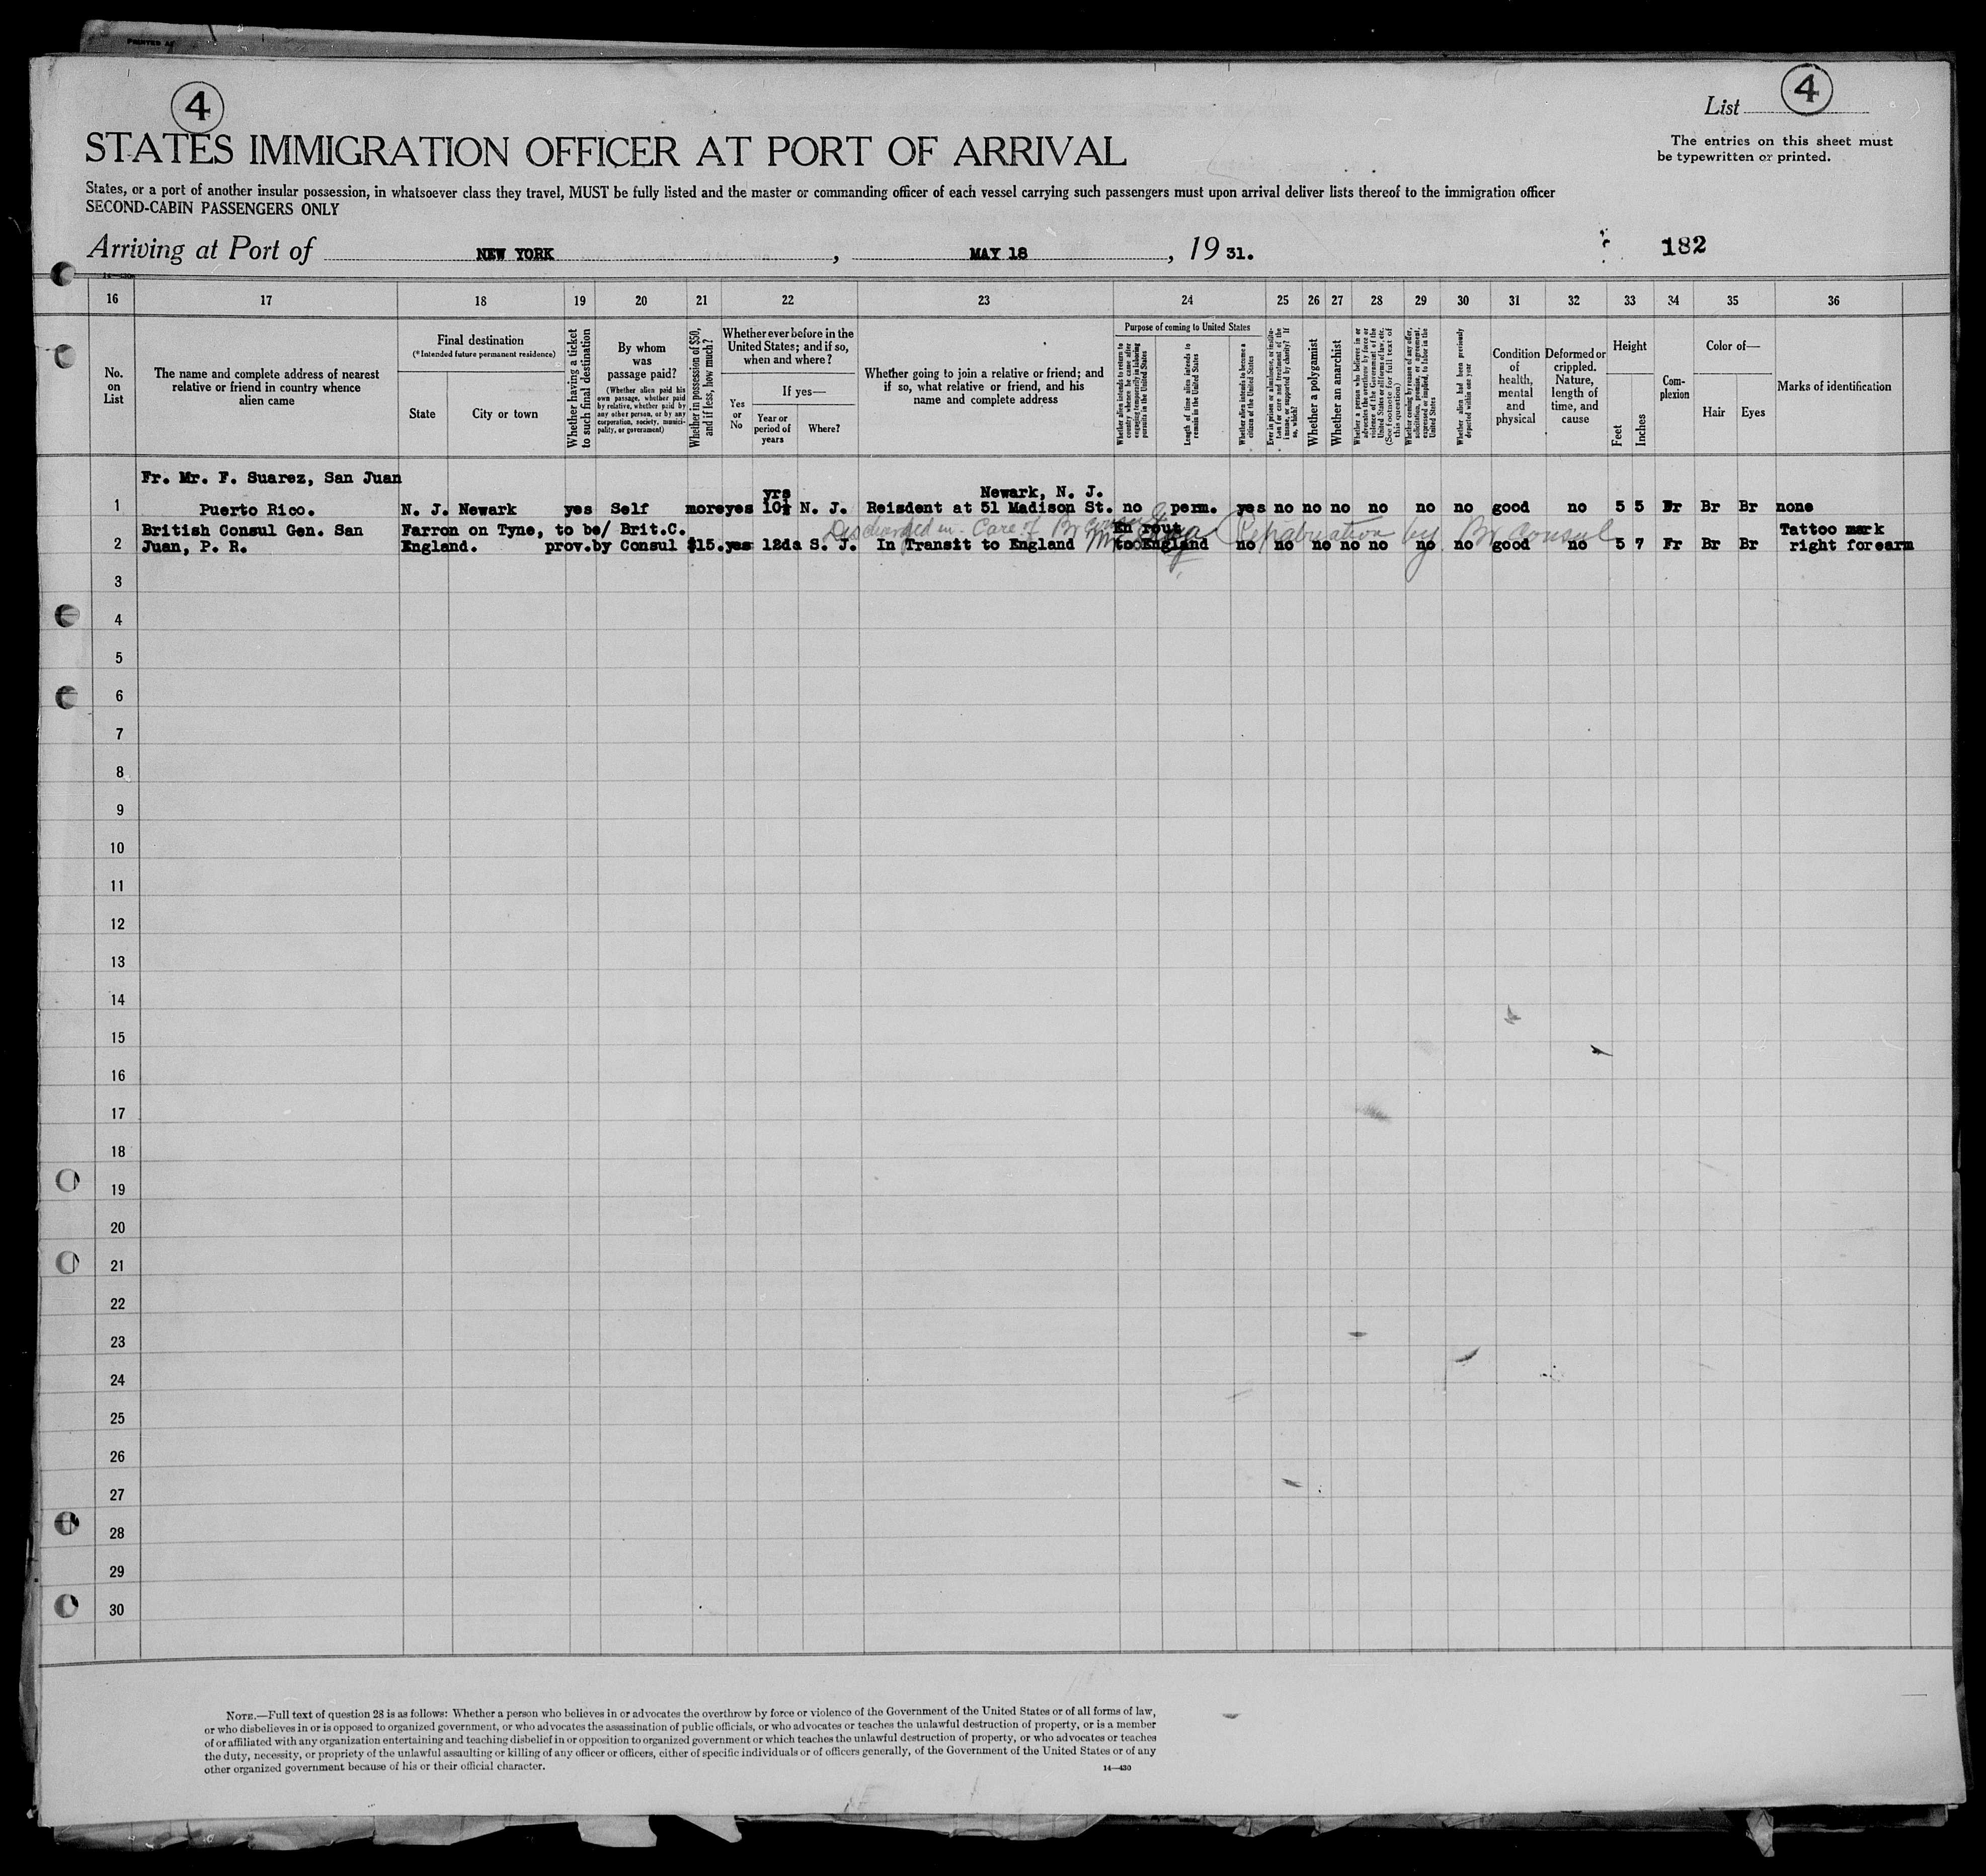 PRINTED
4
List 4
STATES IMMIGRATION OFFICER AT PORT OF ARRIVAL
The entries on this sheet must
be typewritten or printed.
States, or a port of another insular possession, in whatsoever class they travel, MUST be fully listed and the master or commanding officer of each vessel carrying such passengers must upon arrival deliver lists thereof to the immigration officer
SECOND-CABIN PASSENGERS ONLY
Arriving at Port of NEW YORK , MAY 18 , 19 31. 182
14—430
16 17 18 19 20 21 22 23 24 25 26 27 28 29 30 31 32 33 34 35 36
No.
on
List
The name and complete address of nearest
relative or friend in country whence
alien came
Final destination
(*Intended future permanent residence)
State
City or town
Whether having a ticket
to such final destination
By whom
was
passage paid?
(Whether alien paid his
own passage, whether paid
by relative, whether paid by
any other person, or by any
corporation, society, munici-
pality, or government)
Whether in possession of $50,
and if less, how much?
Whether ever before in the
United States; and if so,
when and where?
Yes
or
No
If yes—
Year or
period of
years
Where?
Whether going to join a relative or friend; and
if so, what relative or friend, and his
name and complete address
Purpose of coming to United States
Whether alien intends to return to
country whence he came after
engaging temporarily in laboring
pursuits in the United States
Length of time alien intends to
remain in the United States
Whether alien intends to become a
citizen of the United States
Ever in prison or almshouse, or institu-
tion for care and treatment of the
insane, or supported by charity? If
so, which?
Whether a polygamist
Whether an anarchist
Whether a person who believes in or
advocates the overthrow by force or
violence of the Government of the
United States or all forms of law, etc.
(See footnote for full text of
this question)
Whether coming by reason of any offer,
solicitation, promise, or agreement,
expressed or implied, to labor in the
United States
Whether alien had been previously
deported within one year
Condition
of
health,
mental
and
physical
Deformed or
crippled.
Nature,
length of
time, and
cause
Height
Feet
Inches
Com-
plexion
Color of—
Hair
Eyes
Marks of identification
Fr. Mr. F. Suarez, San Juan
yrs Newark, N. J.
1 Puerto Rico. N. J. Newark yes Self more yes 10½ N. J. Reisdent at 51 Madison St. no perm. yes no no no no no no good no 5 5 Br Br Br none
Discharged in Care of Br Consul Repatriation by Br Consul
British Consul Gen. San Farron on Tyne, to be/ Brit.C. En rout Tattoo mark
2 Juan, P. R. England. prov.by Consul $15. yes 12da S. J. In Transit to England to England no no no no no no no good no 5 7 Fr Br Br right forearm
3
4
5
6
7
8
9
10
11
12
13
14
15
16
17
18
19
20
21
22
23
24
25
26
27
28
29
30
NOTE.—Full text of question 28 is as follows: Whether a person who believes in or advocates the overthrow by force or violence of the Government of the United States or of all forms of law,
or who disbelieves in or is opposed to organized government, or who advocates the assassination of public officials, or who advocates or teaches the unlawful destruction of property, or is a member
of or affiliated with any organization entertaining and teaching disbelief in or opposition to organized government or which teaches the unlawful destruction of property, or who advocates or teaches
the duty, necessity, or propriety of the unlawful assaulting or killing of any officer or officers, either of specific individuals or of officers generally, of the Government of the United States or of any
other organized government because of his or their official character.
14—430